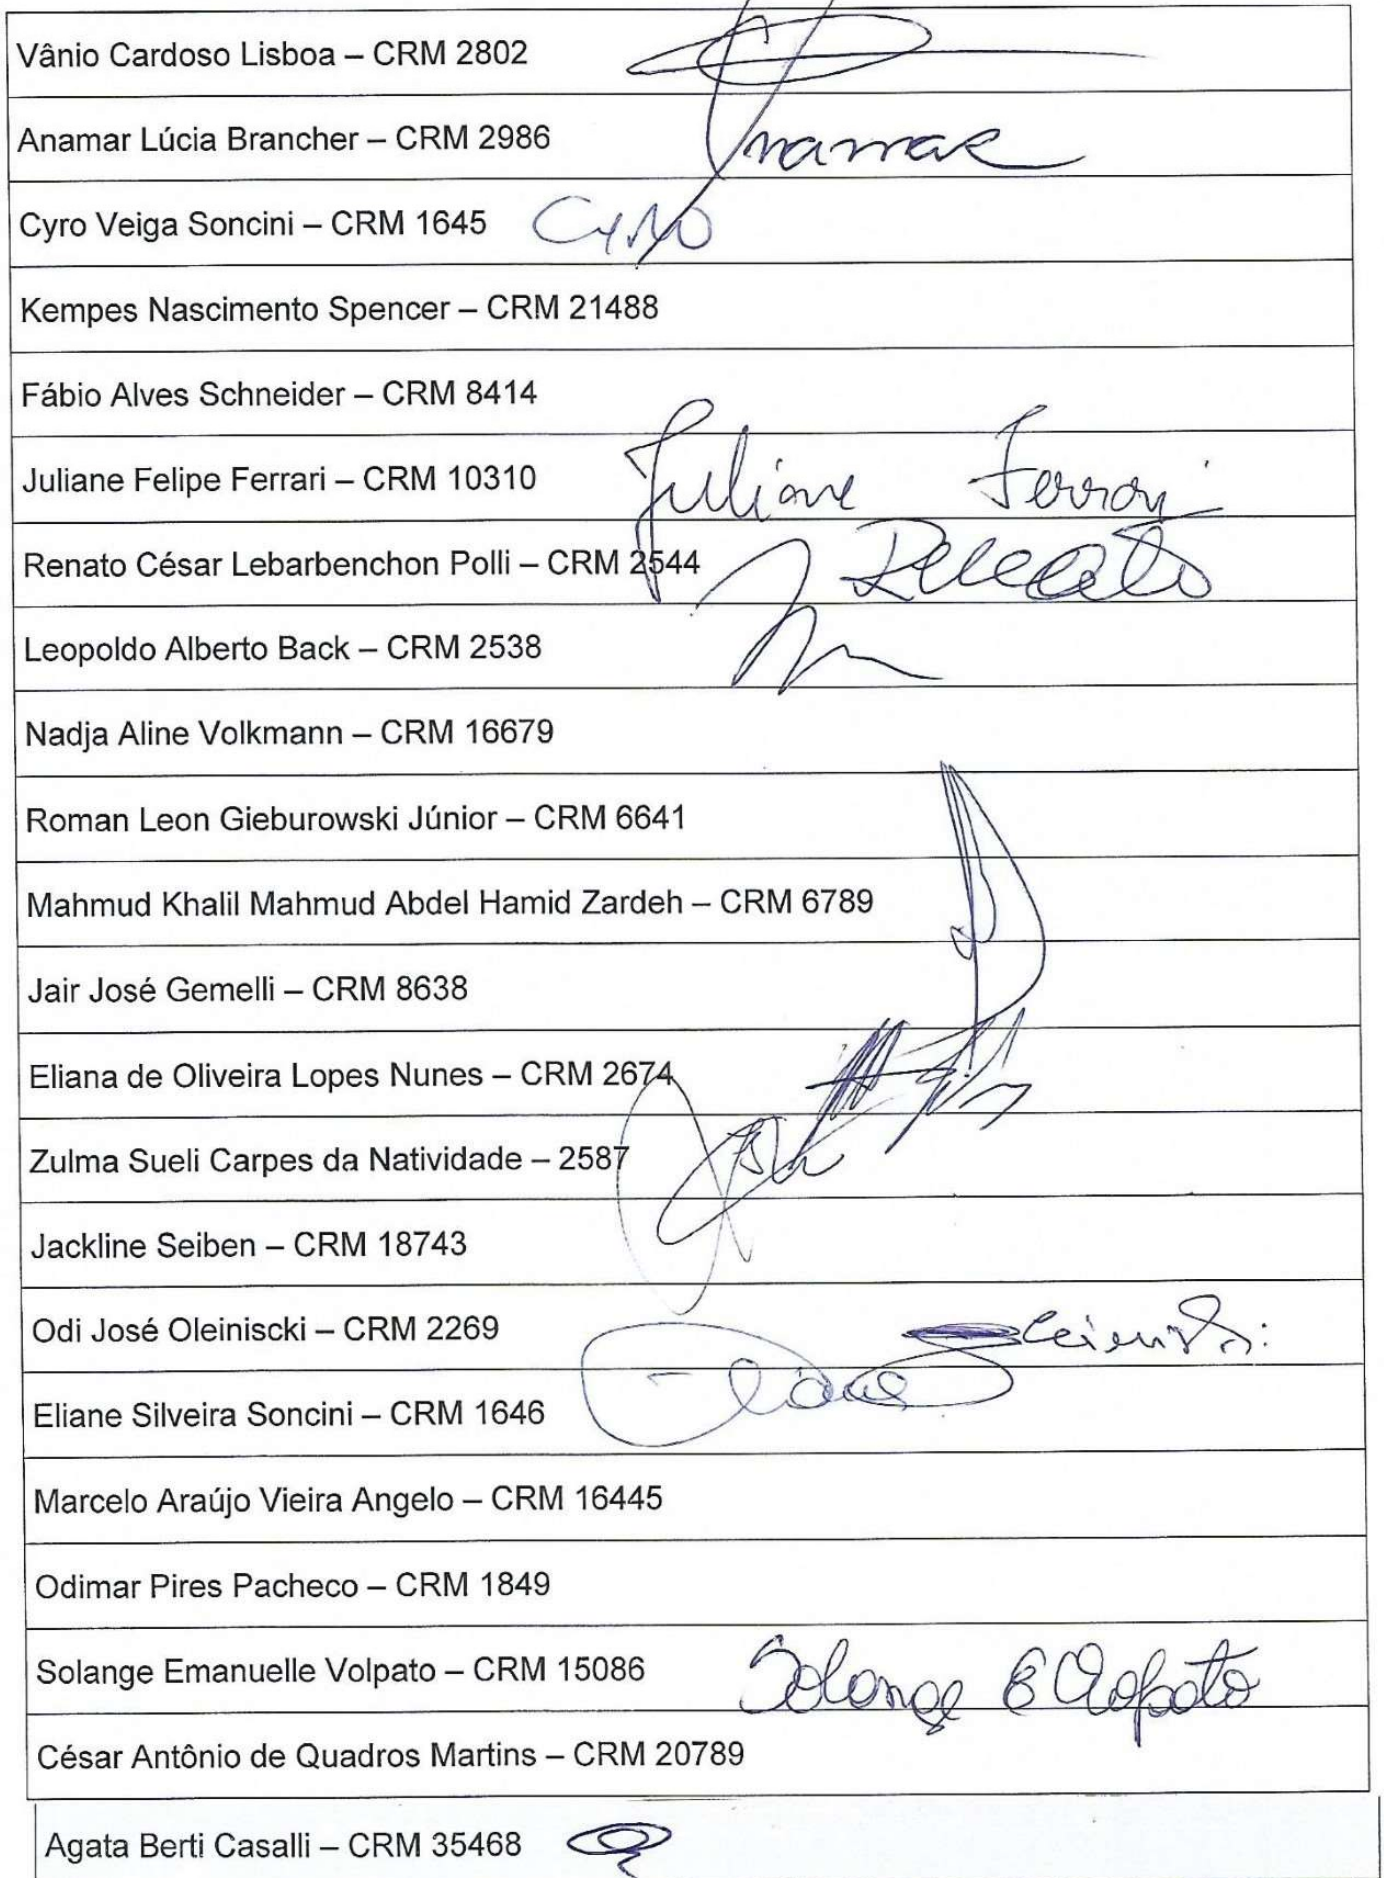 Vânio Cardoso Lisboa – CRM 2802
Anamar Lúcia Brancher – CRM 2986 Anamar
Cyro Veiga Soncini – CRM 1645 Cyro
Kempes Nascimento Spencer – CRM 21488
Fábio Alves Schneider – CRM 8414
Juliane Felipe Ferrari – CRM 10310 Juliane Ferrari
Renato César Lebarbenchon Polli – CRM 2544
Leopoldo Alberto Back – CRM 2538
Nadja Aline Volkmann – CRM 16679
Roman Leon Gieburowski Júnior – CRM 6641
Mahmud Khalil Mahmud Abdel Hamid Zardeh – CRM 6789
Jair José Gemelli – CRM 8638
Eliana de Oliveira Lopes Nunes – CRM 2674
Zulma Sueli Carpes da Natividade – 2587
Jackline Seiben – CRM 18743
Odi José Oleiniscki – CRM 2269
Eliane Silveira Soncini – CRM 1646
Marcelo Araújo Vieira Angelo – CRM 16445
Odimar Pires Pacheco – CRM 1849
Solange Emanuelle Volpato – CRM 15086 Solange E Volpato
César Antônio de Quadros Martins – CRM 20789
Agata Berti Casalli – CRM 35468